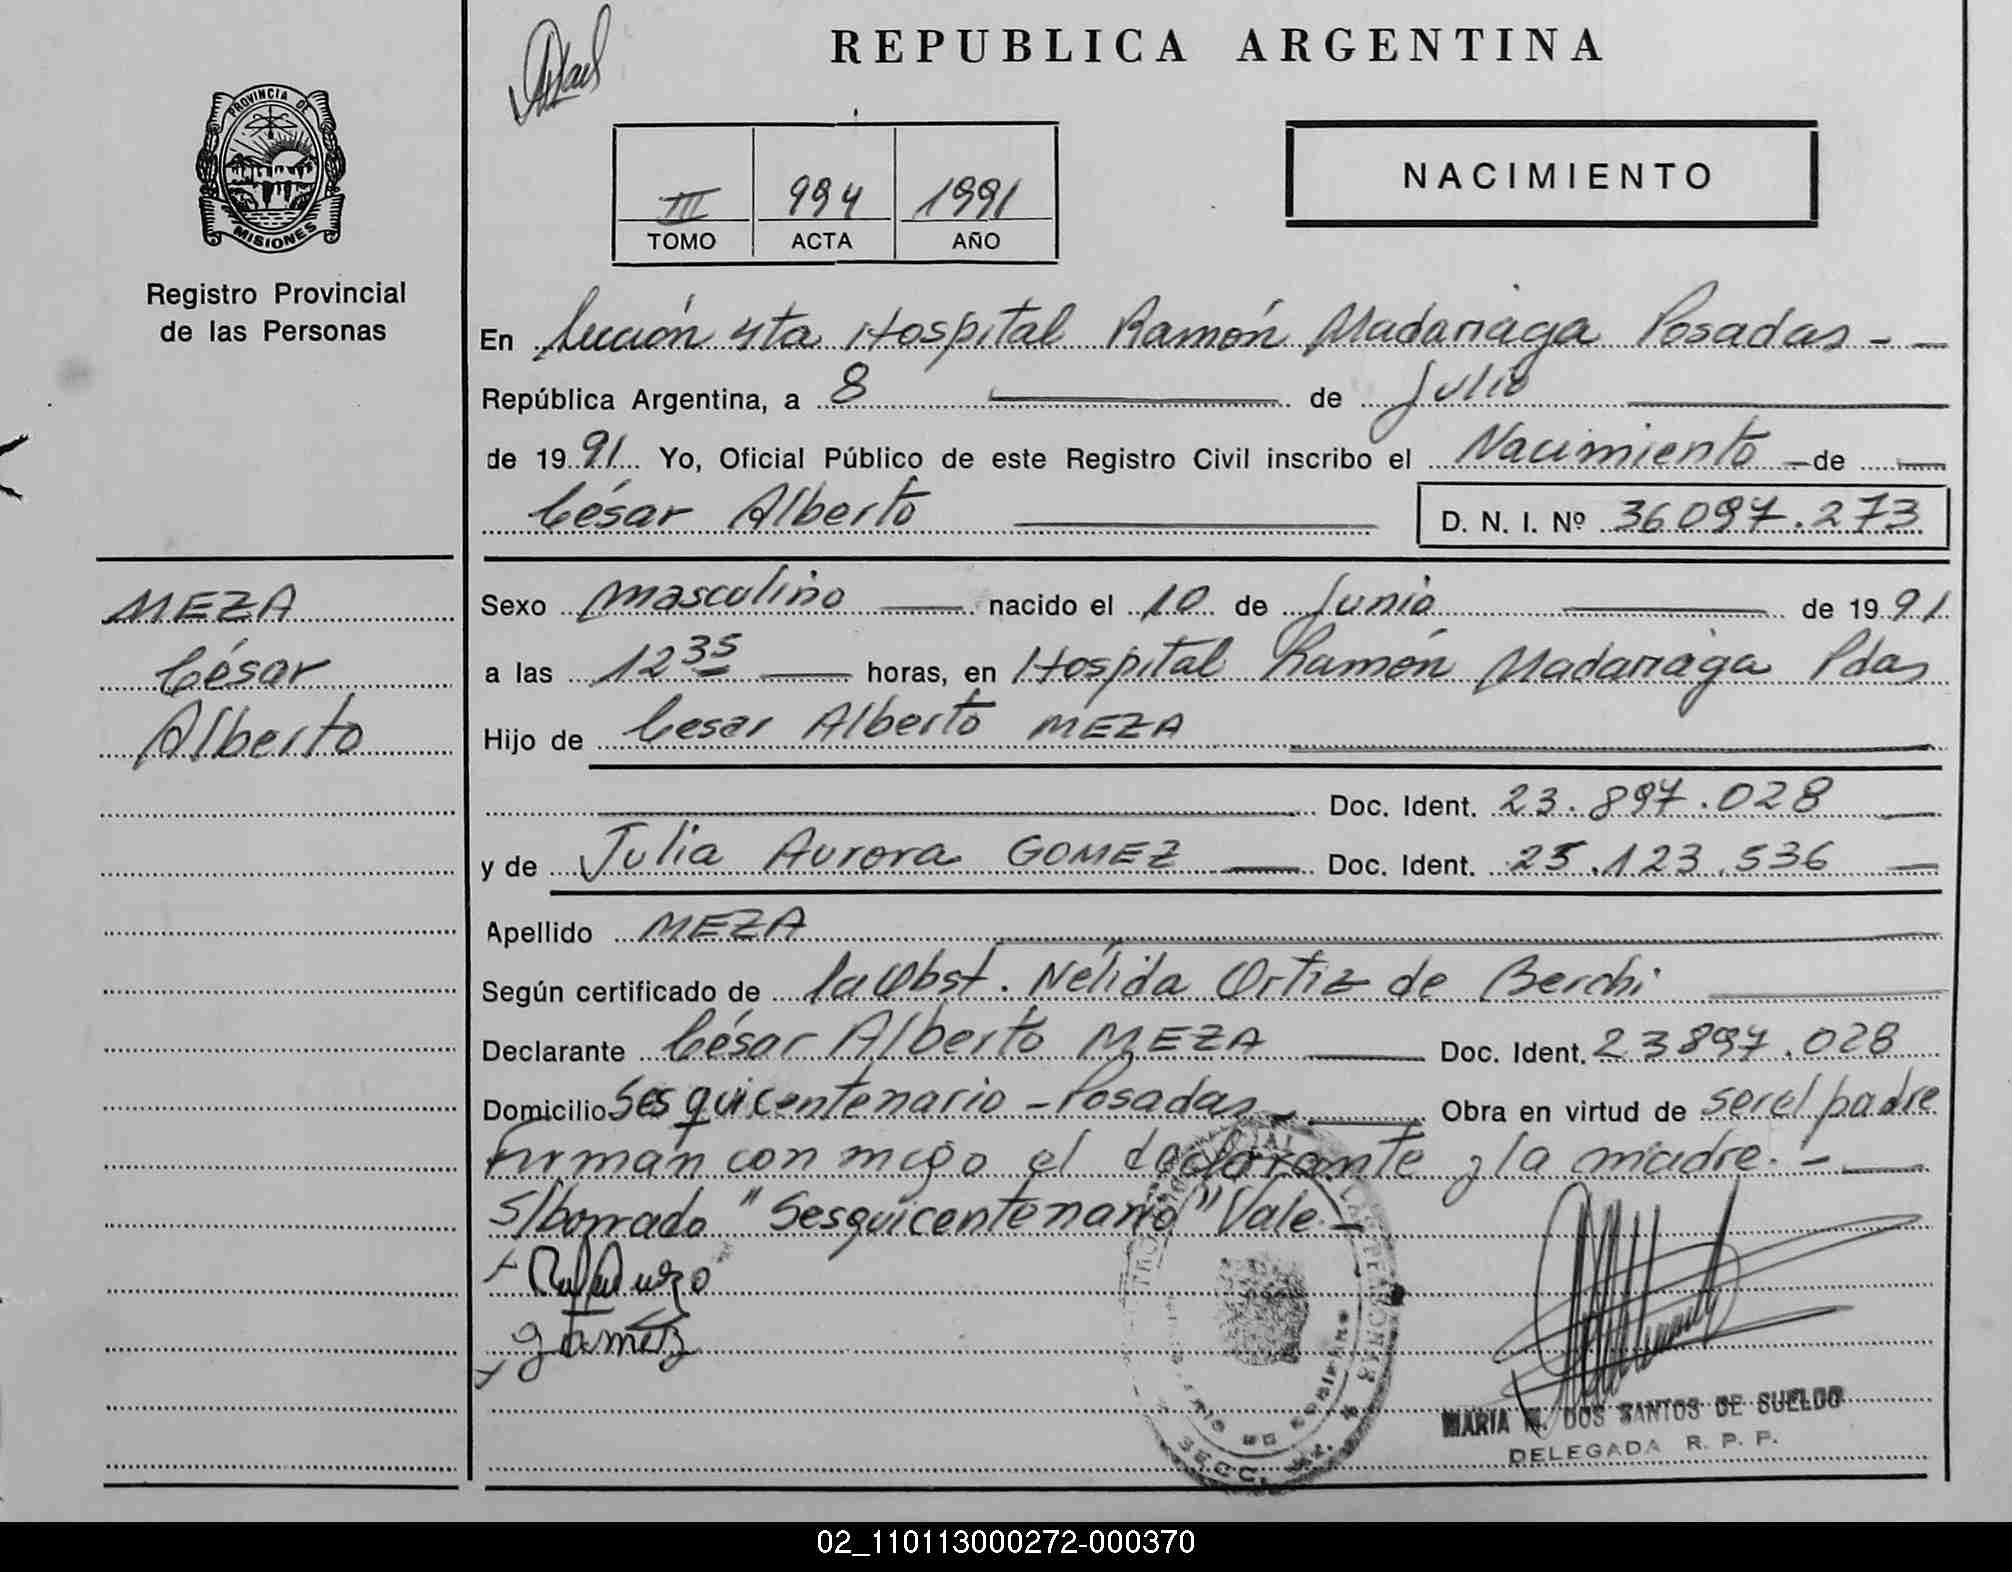 REPUBLICA ARGENTINA
PROVINCIA DE
MISIONES
Registro Provincial
de las Personas
III 994 1991
TOMO ACTA AÑO
NACIMIENTO
En Sección 4ta Hospital Ramón Madariaga Posadas - -
República Argentina, a 8 de Julio
de 1991 Yo, Oficial Público de este Registro Civil inscribo el Nacimiento de
César Alberto D. N. I. Nº 36097.273
MEZA
César
Alberto
Sexo masculino nacido el 10 de Junio de 1991
a las 12 35 horas, en Hospital Ramón Madariaga Pdas
Hijo de Cesar Alberto MEZA
Doc. Ident. 23.897.028
y de Julia Aurora GOMEZ Doc. Ident. 25.123.536
Apellido MEZA
Según certificado de la Obst. Nélida Ortiz de Berchi
Declarante César Alberto MEZA Doc. Ident. 23897.028
Domicilio Sesquicentenario - Posadas - Obra en virtud de ser el padre
Firman con migo el declarante y la madre. -
S/borrado "Sesquicentenario" Vale -
Gomez
MARIA N. DOS SANTOS DE SUELDO
DELEGADA R. P. P.
02_110113000272-000370